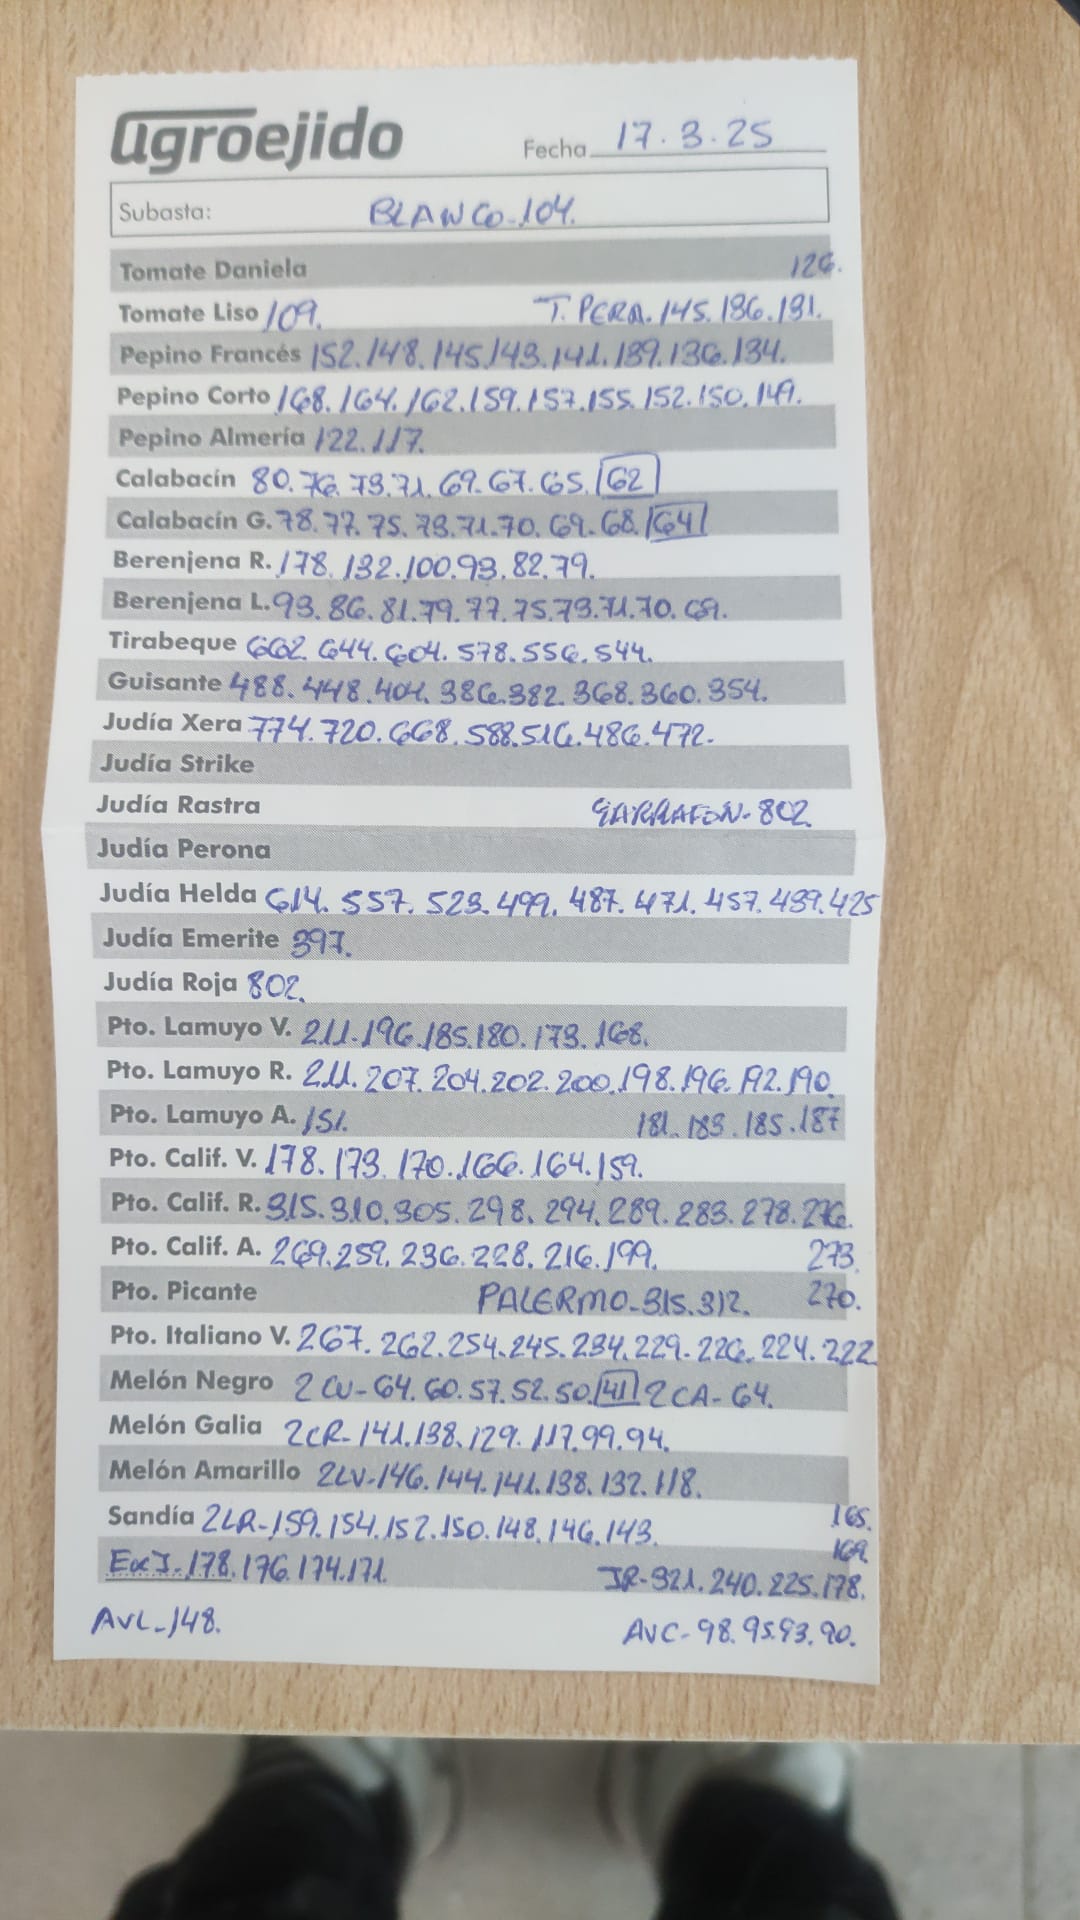 agroejido Fecha 17.3.25
Subasta: BLANCO-104.
Tomate Daniela 126.
Tomate Liso 109. T. PERA. 145.136.131.
Pepino Francés 152.148.145.143.141.139.136.134.
Pepino Corto 168.164.162.159.157.155.152.150.149.
Pepino Almería 122.117.
Calabacín 80.76.73.71.69.67.65.62
Calabacín G. 78.77.75.73.71.70.69.68.64
Berenjena R. 178.132.100.93.82.79.
Berenjena L. 93.86.81.79.77.75.73.71.70.69.
Tirabeque 662.644.604.578.556.544.
Guisante 488.448.404.386.382.368.360.354.
Judía Xera 774.720.668.588.516.486.472.
Judía Strike
Judía Rastra GARRAFON-802.
Judía Perona
Judía Helda 614.557.523.499.487.471.457.439.425
Judía Emerite 397.
Judía Roja 802.
Pto. Lamuyo V. 211.196.185.180.173.168.
Pto. Lamuyo R. 211.207.204.202.200.198.196.192.190.
Pto. Lamuyo A. 151. 181.183.185.187
Pto. Calif. V. 178.173.170.166.164.159.
Pto. Calif. R. 315.310.305.298.294.289.283.278.276.
Pto. Calif. A. 269.259.236.228.216.199. 273.
Pto. Picante PALERMO-315.312. 270.
Pto. Italiano V. 267.262.254.245.234.229.226.224.222
Melón Negro 2CU-64.60.57.52.50.41 2CA-64.
Melón Galia 2CR-141.138.129.117.99.94.
Melón Amarillo 2LV-146.144.141.138.132.118.
Sandía 2LR-159.154.152.150.148.146.143. 165.
169.
ExJ-178.176.174.171. JR-321.240.225.178.
AVL-148. AVC-98.95.93.90.